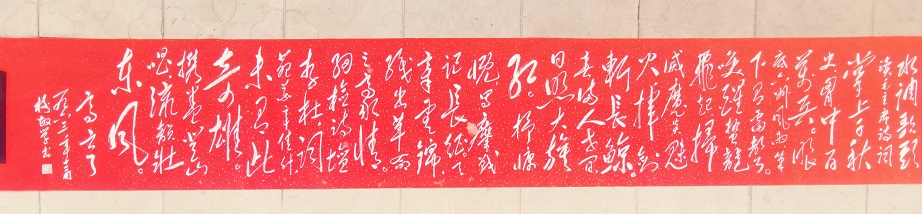 水调歌头
读毛主席诗词
掌上千秋
史胸中百
万兵。眼
底六洲风雨笔
下有雷声。
唤醒蛰龙
飞起扫
灭魔炎魅
火挥剑
斩长鲸。
春满人世间
日照大旗
红。抒慷
慨写鏖战
记长征。天
章云锦
织出革命
之豪情。
细检诗坛
李杜词
苑苏辛佳什
未有此
奇雄。
携卷登山
唱流韵壮
东风。